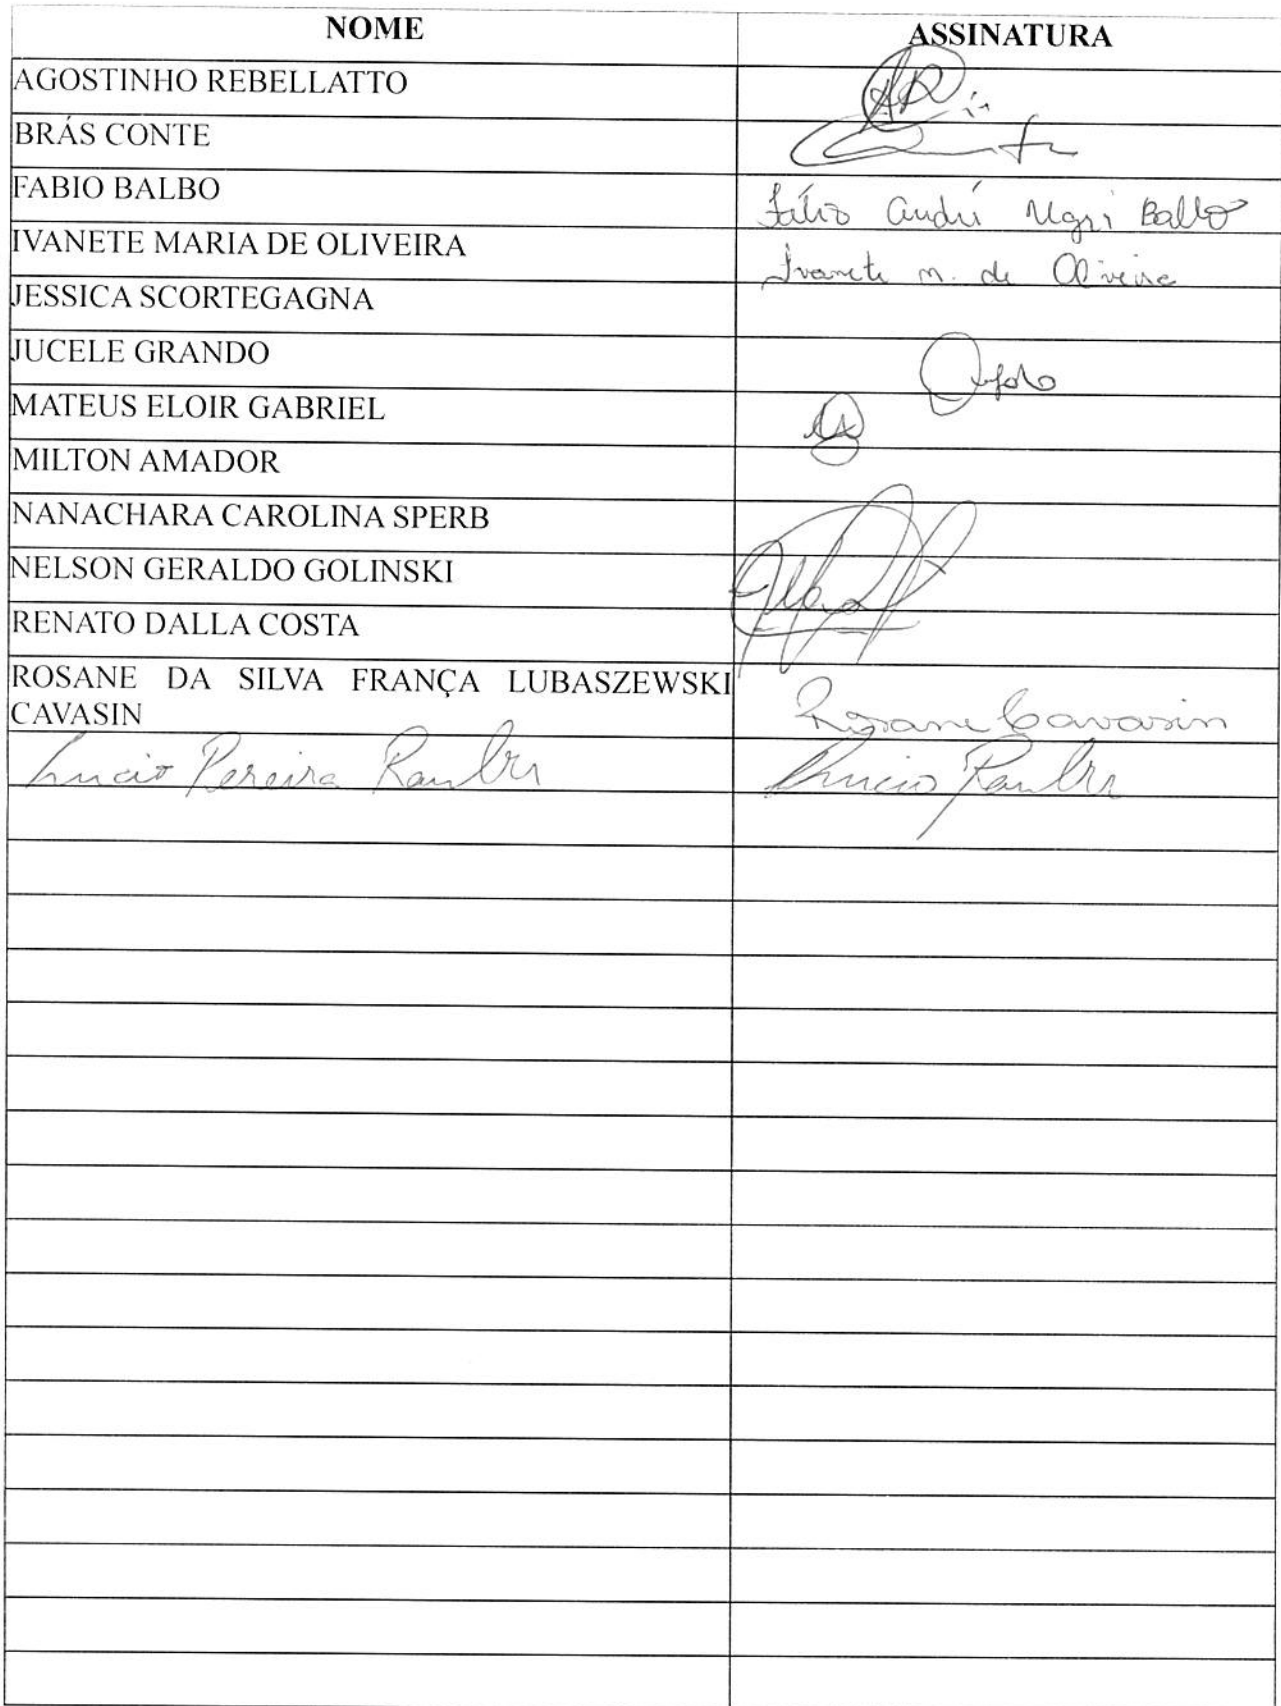 NOME ASSINATURA
AGOSTINHO REBELLATTO
BRÁS CONTE
FABIO BALBO Fábio André Negri Balbo
IVANETE MARIA DE OLIVEIRA Ivanete m. de Oliveira
JESSICA SCORTEGAGNA
JUCELE GRANDO
MATEUS ELOIR GABRIEL
MILTON AMADOR
NANACHARA CAROLINA SPERB
NELSON GERALDO GOLINSKI
RENATO DALLA COSTA
ROSANE DA SILVA FRANÇA LUBASZEWSKI
CAVASIN Rosane Cavasin
Lucio Pereira Lucio